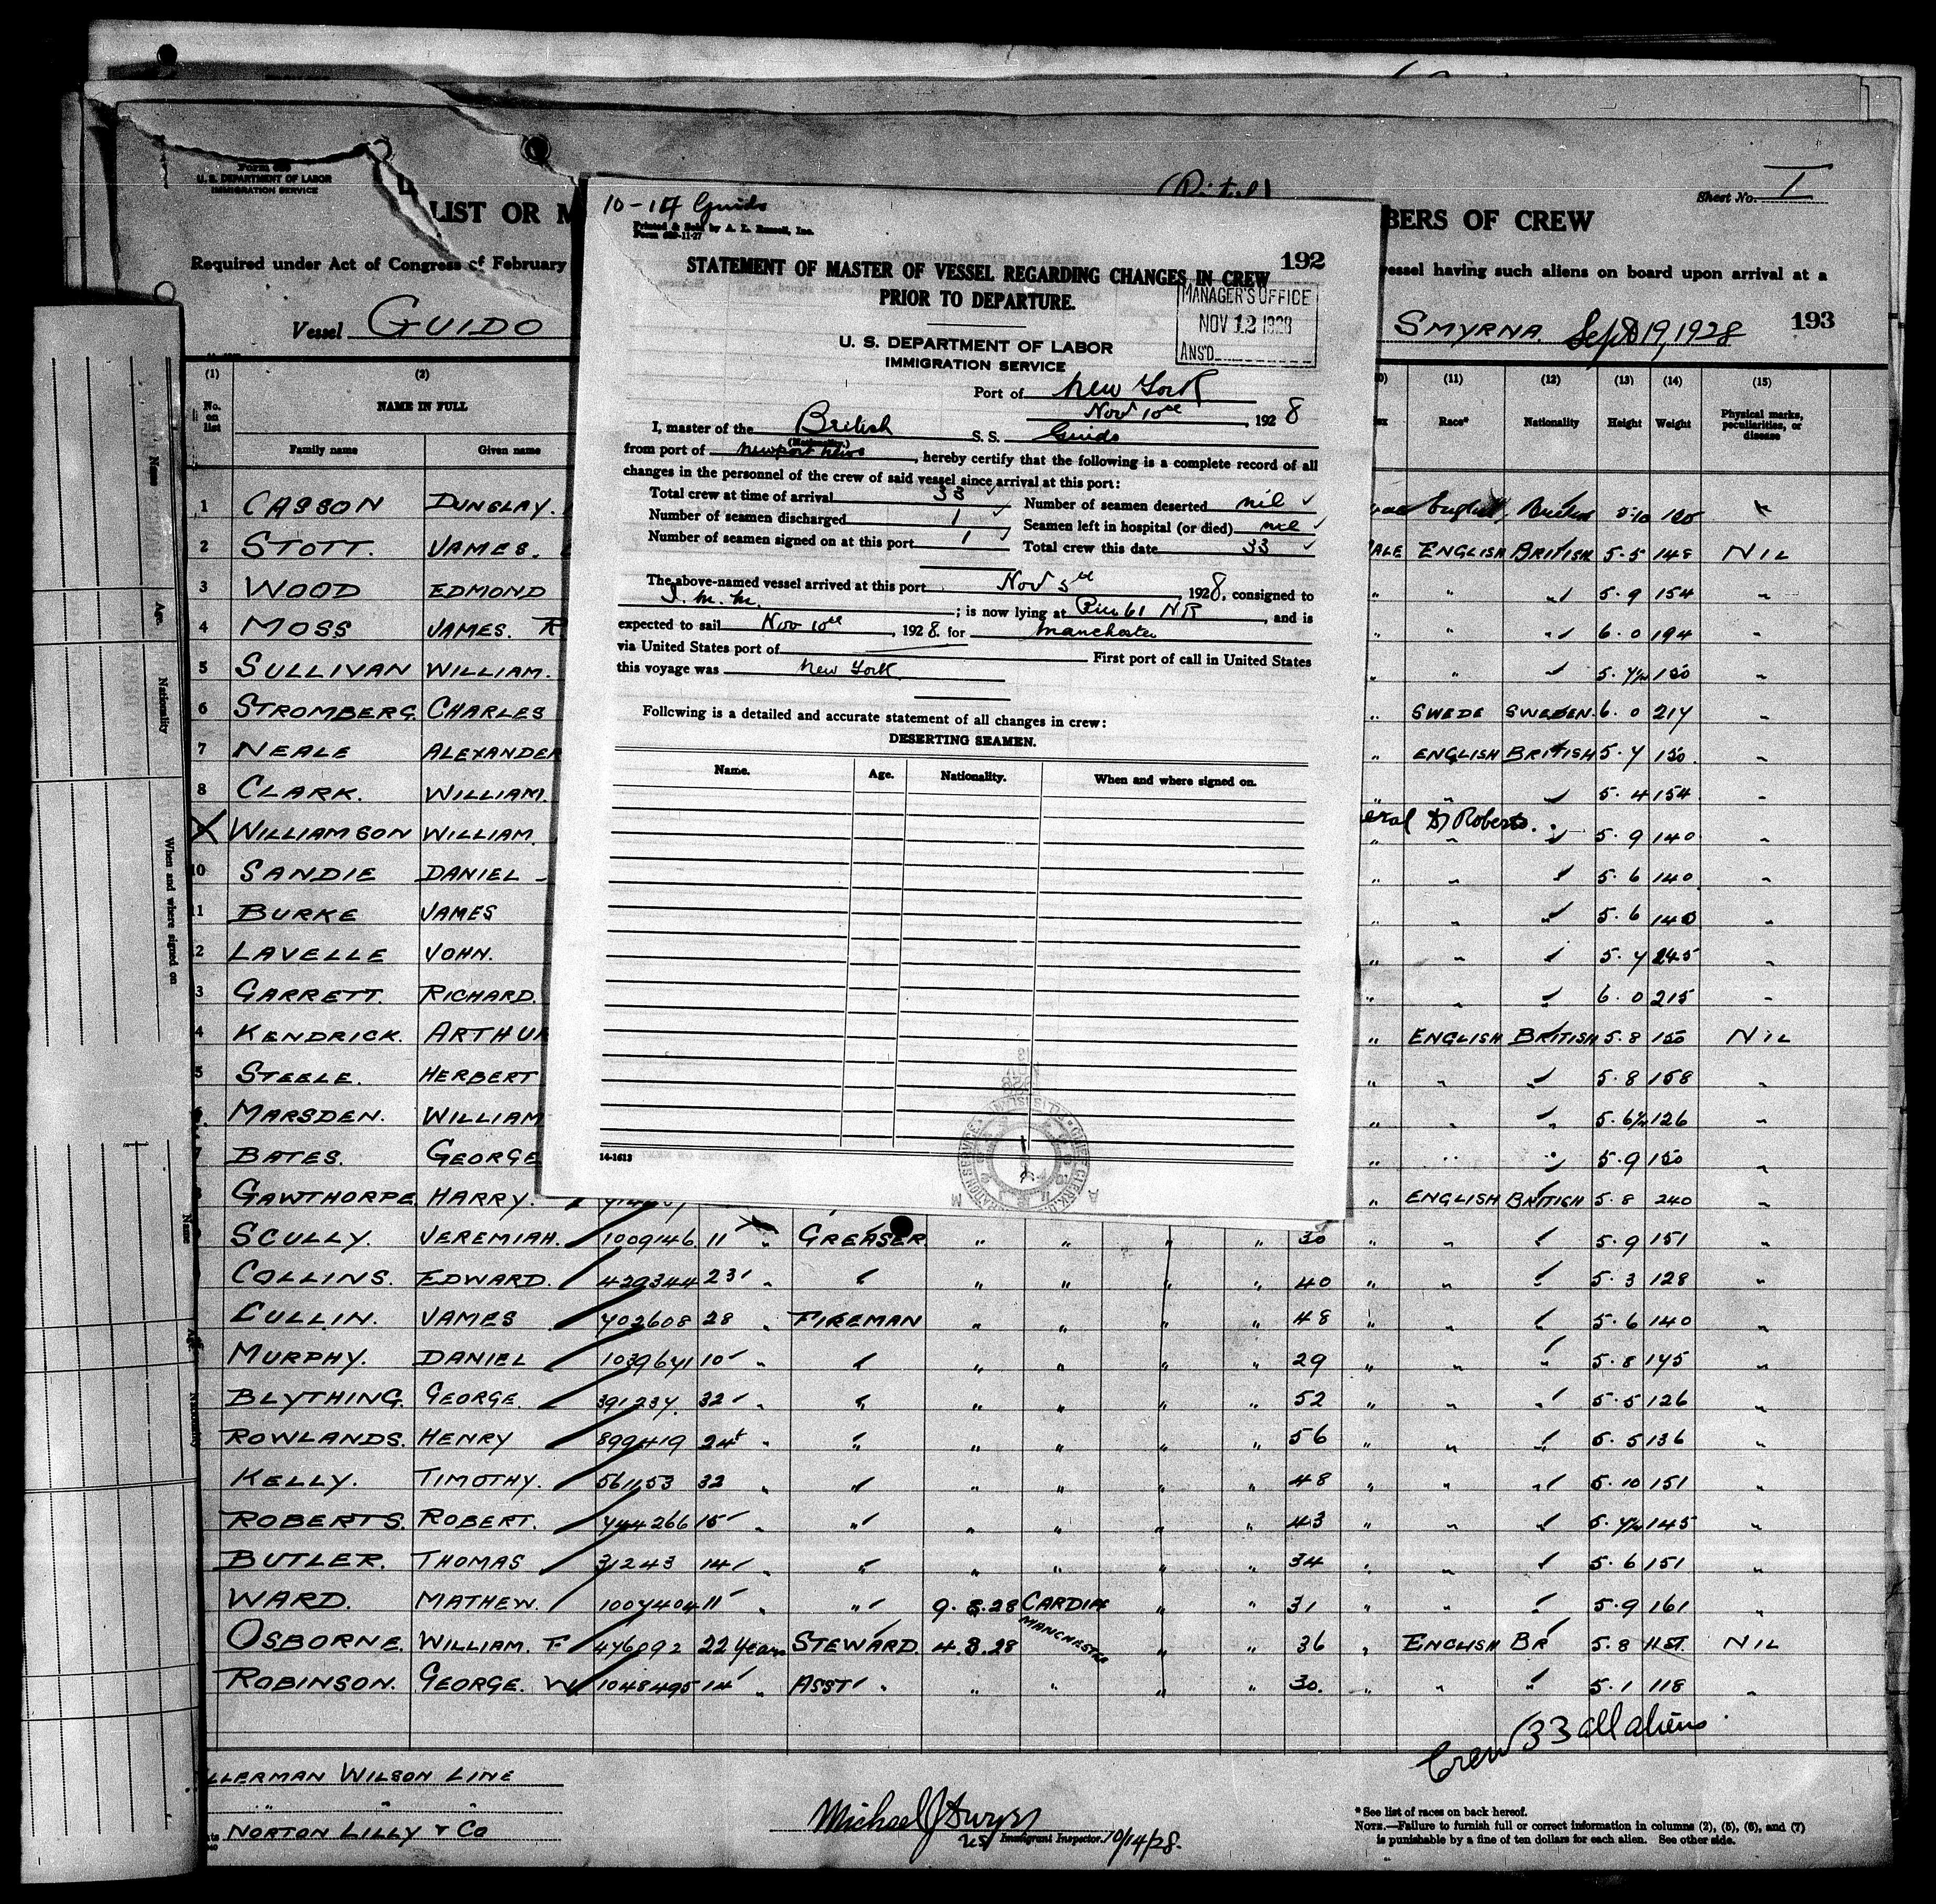 Form 689
U. S. DEPARTMENT OF LABOR
IMMIGRATION SERVICE
Sheet No. I
LIST OR M
BERS OF CREW
Required under Act of Congress of February
vessel having such aliens on board upon arrival at a
Vessel GUIDO
SMYRNA. Sept 19, 1928
193
10-14 Guido
Printed & Sold by A. L. Russell, Inc.
Form 689-11-27
192
STATEMENT OF MASTER OF VESSEL REGARDING CHANGES IN CREW
PRIOR TO DEPARTURE.
MANAGER'S OFFICE
NOV 12 1928
ANS'D
U. S. DEPARTMENT OF LABOR
IMMIGRATION SERVICE
Port of New York
Nov 10th, 1928
I, master of the British S. S. Guido
(Nationality.)
from port of Newport News, hereby certify that the following is a complete record of all
changes in the personnel of the crew of said vessel since arrival at this port:
Total crew at time of arrival 33 ✓ Number of seamen deserted nil ✓
Number of seamen discharged 1 ✓ Seamen left in hospital (or died) nil ✓
Number of seamen signed on at this port 1 ✓ Total crew this date 33 ✓
The above-named vessel arrived at this port Nov 5th 1928, consigned to
I. M. M. ; is now lying at Pier 61 NR, and is
expected to sail Nov 10th, 1928. for Manchester
via United States port of First port of call in United States
this voyage was New York
Following is a detailed and accurate statement of all changes in crew:
DESERTING SEAMEN.
Name. Age. Nationality. When and where signed on.
14-1613
(1) (2) (11) (12) (13) (14) (15)
No. on list NAME IN FULL Race* Nationality Height Weight Physical marks, peculiarities, or disease
Family name Given name
1 CASSON DUNSLAY. English British 5·10
2 STOTT. JAMES. MALE ENGLISH BRITISH 5·5 148 NIL
3 WOOD EDMOND " " " 5·9 154 "
4 MOSS JAMES. R " " " 6·0 194 "
5 SULLIVAN WILLIAM. " " " 5·7½ 150 "
6 STROMBERG. CHARLES " SWEDE SWEDEN. 6·0 217 "
7 NEALE ALEXANDER " ENGLISH BRITISH 5·7 150 "
8 CLARK. WILLIAM. " " 5·4 154 "
X WILLIAMSON WILLIAM. D Roberts. " " " 5·9 140 "
10 SANDIE DANIEL " " " 5·6 140 "
11 BURKE JAMES " " " 5·6 140 "
2 LAVELLE JOHN. " " " 5·7 245 "
3 GARRETT. RICHARD. " " " 6·0 215 "
4 KENDRICK. ARTHUR " ENGLISH BRITISH 5·8 150 NIL
5 STEELE. HERBERT " " " 5·8 158 "
MARSDEN. WILLIAM " " " 5·6½ 126 "
7 BATES. GEORGE " " " 5·9 150 "
8 GAWTHORPE. HARRY. " ENGLISH BRITISH 5·8 240 "
SCULLY. JEREMIAH. 1009146 11 " GREASER. " " " " 30 " " " 5·9 151 "
COLLINS. EDWARD. 429344 23 " " " " " " 40 " " " 5·3 128 "
CULLIN. JAMES 702608 28 " FIREMAN " " " " 48 " " " 5·6 140 "
MURPHY. DANIEL 1039671 10 " " " " " " 29 " " " 5·8 145 "
BLYTHING. GEORGE. 391237. 32 " " " " " " 52 " " " 5·5 126 "
ROWLANDS. HENRY 899419 24 " " " " " " 56 " " " 5·5 136 "
KELLY. TIMOTHY. 561153 32 " " " " " " 48 " " " 5·10 151 "
ROBERTS. ROBERT. 744266 15 " " " " " " 43 " " " 5·7½ 145 "
BUTLER. THOMAS 31243 14 " " " " " " 34 " " " 5·6 151 "
WARD. MATHEW. 1007404 11 " " 9.8.28 CARDIFF " " 31 " " " 5·9 161 "
OSBORNE. WILLIAM. F 476092 22 Years STEWARD. 4.8.28 MANCHESTER " " 36 " ENGLISH BR 5·8 11 ST. NIL
ROBINSON. GEORGE. W. 1048495 14 " ASST " " " " " 30. " " " 5·1 118 "
Crew 33 all aliens
ELLERMAN WILSON LINE
" " "
NORTON LILLY & CO
Michael J Dwyer
US Immigrant Inspector. 10/14/28.
* See list of races on back hereof.
NOTE.—Failure to furnish full or correct information in columns (2), (5), (6), and (7)
is punishable by a fine of ten dollars for each alien. See other side.
Name
Age.
Nationality
When and where signed on
Name
Age
Nationality